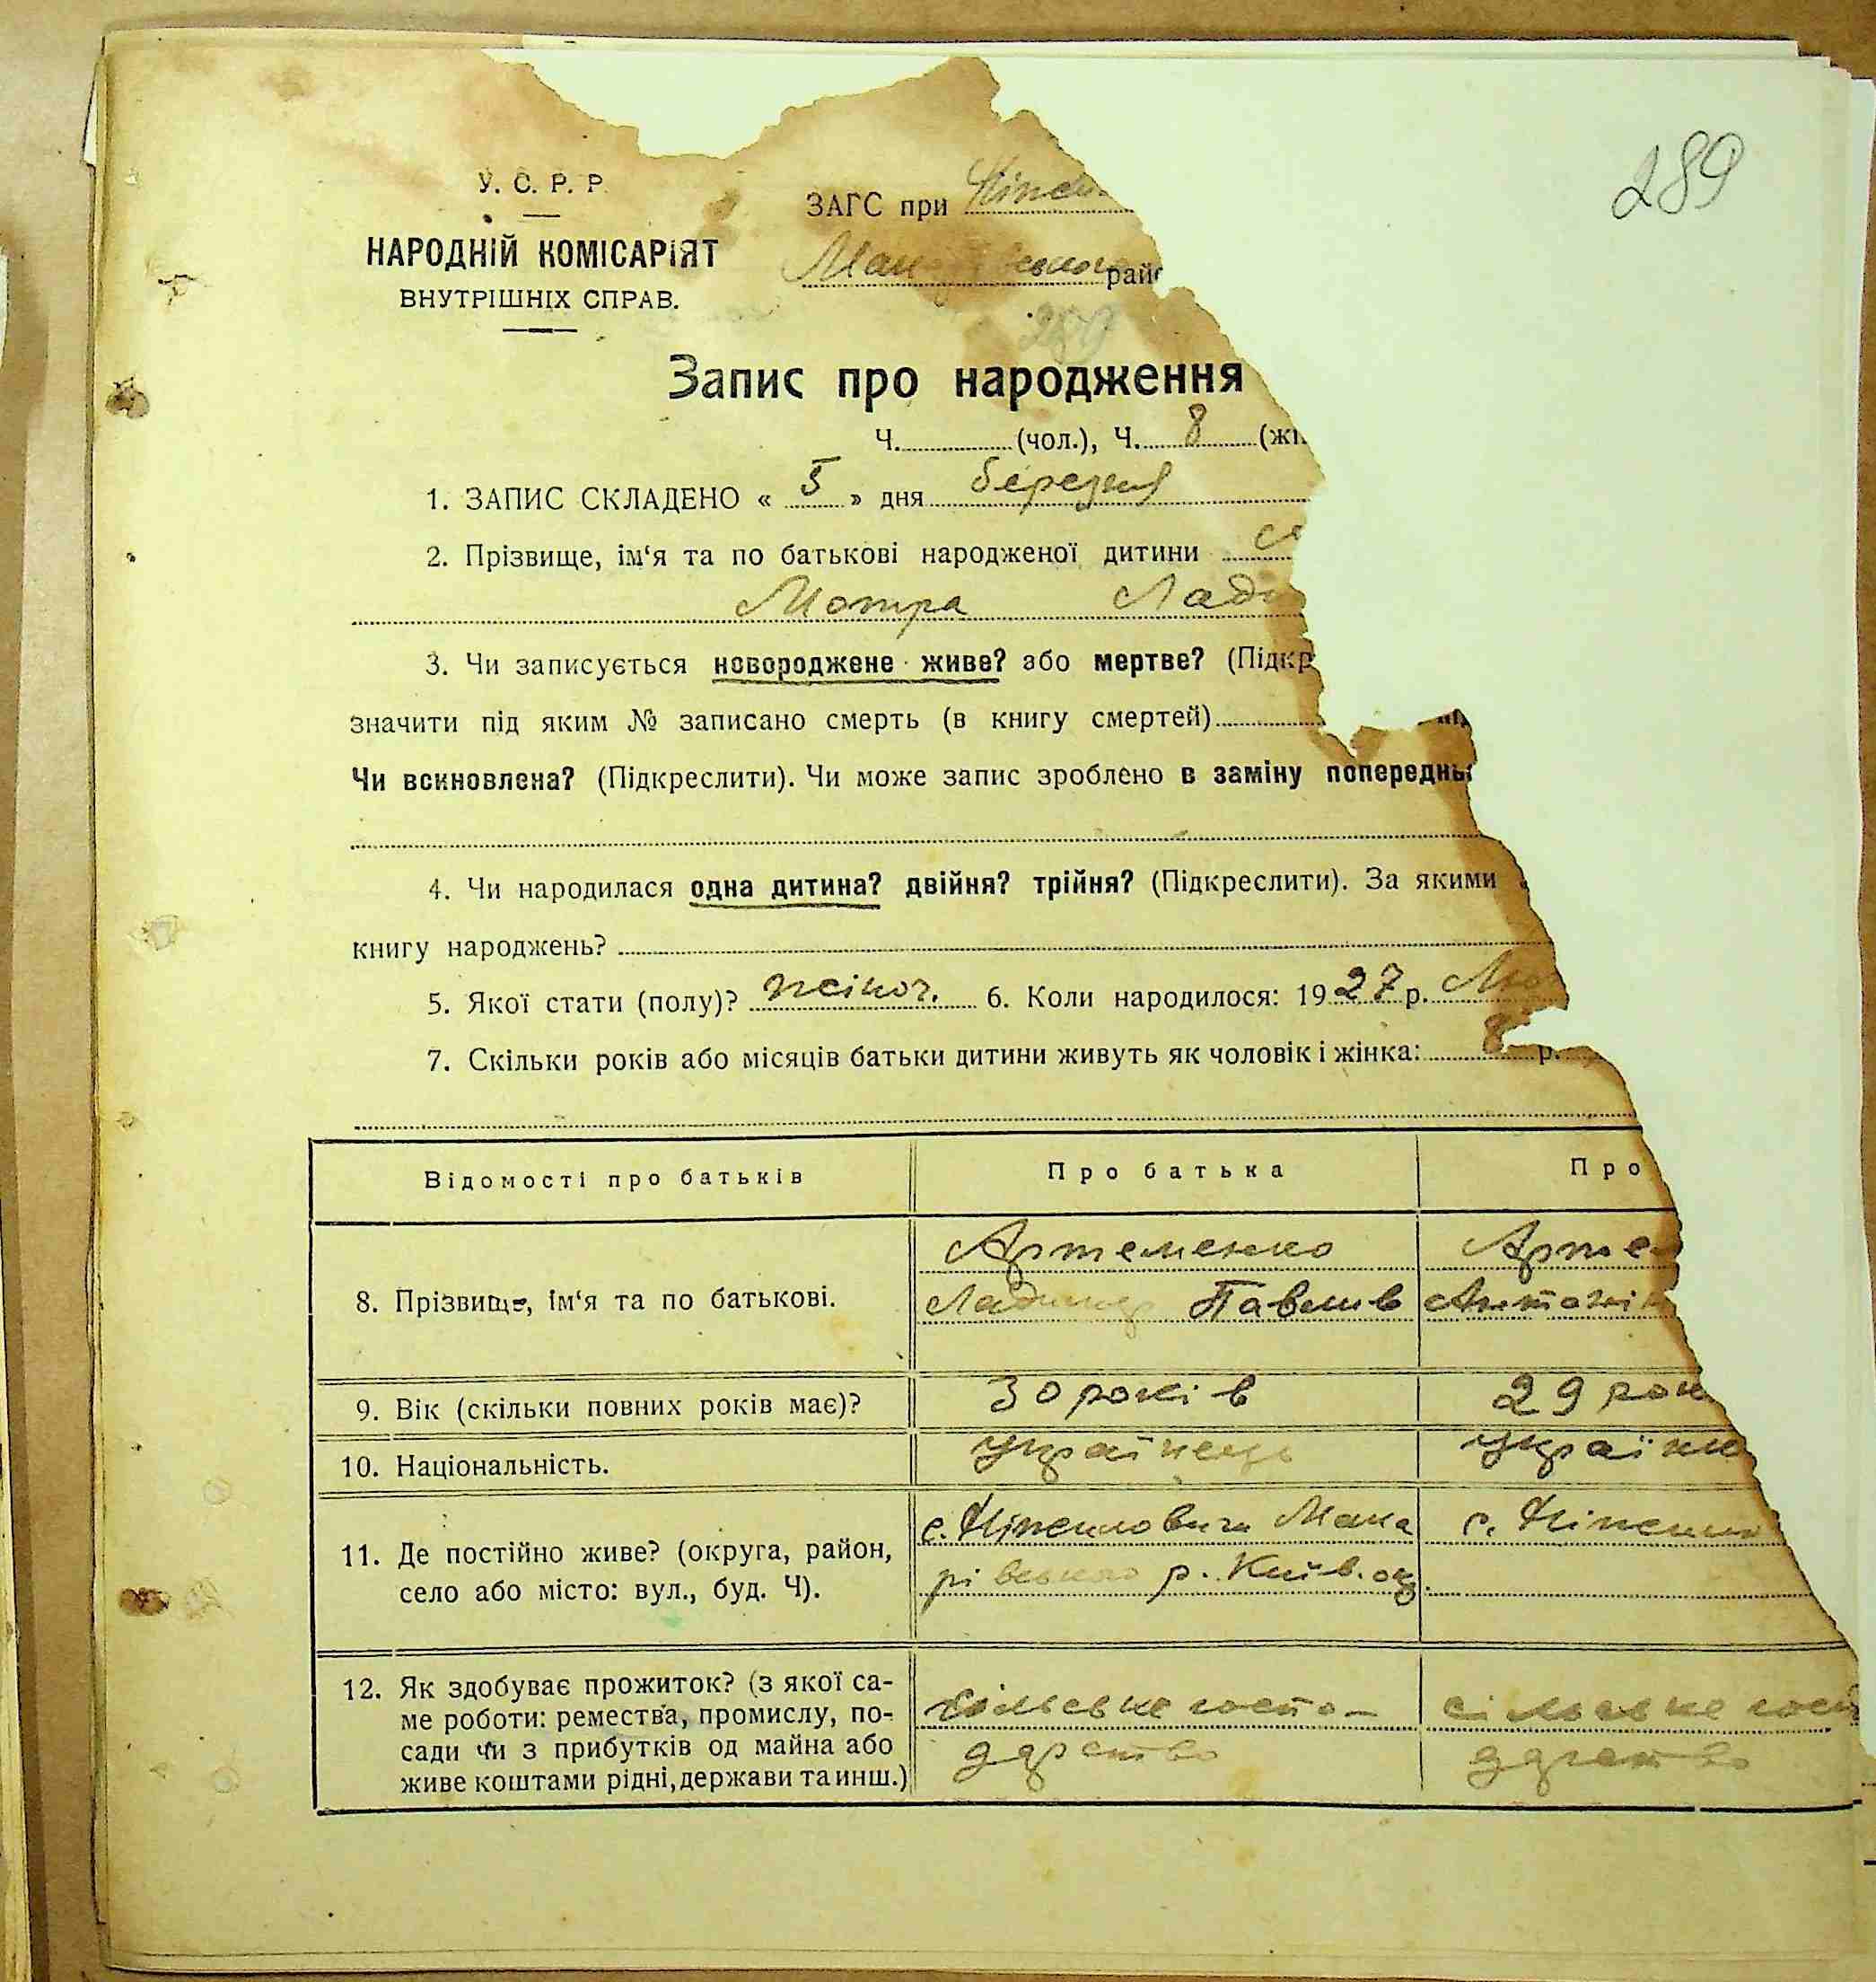 289
У. С. Р. Р.
НАРОДНІЙ КОМІСАРІЯТ
ВНУТРІШНІХ СПРАВ.
ЗАГС при
райо
Запис про народження
Ч. (чол.), Ч. 8 (жі
1. ЗАПИС СКЛАДЕНО « 5 » дня березня
2. Прізвище, ім‘я та по батькові народженої дитини
Мотра Лади
3. Чи записується новороджене живе? або мертве? (Підкр
значити під яким № записано смерть (в книгу смертей)
Чи всиновлена? (Підкреслити). Чи може запис зроблено в заміну попередньі
4. Чи народилася одна дитина? двійня? трійня? (Підкреслити). За якими
книгу народжень?
5. Якої стати (полу)? жіноч. 6. Коли народилося: 1927 р. Лю
7. Скільки років або місяців батьки дитини живуть як чоловік і жінка: 8 р.
Відомості про батьків Про батька Про
8. Прізвище, ім‘я та по батькові. Артеменко Артем
Павлив Антонін
9. Вік (скільки повних років має)? 30 років 29 рок
10. Національність. українець українк
11. Де постійно живе? (округа, район, село або місто: вул., буд. Ч). с. Ніжиловичи Мака с. Ніжило
рівського р. Київ. окр.
12. Як здобуває прожиток? (з якої са-
ме роботи: ремества, промислу, по-
сади чи з прибутків од майна або
живе коштами рідні, держави та инш.)
сільське госпо- сільське госп
дарство дарство